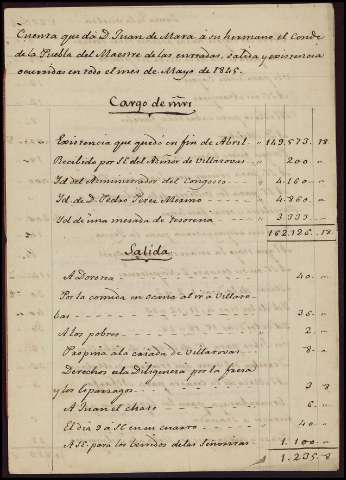 Cuenta que dá D. Juan de Mata á su hermano el Conde
de la Puebla del Maestre de las entradas, salida y existencia
ocurridas en todo el mes de Mayo de 1845.
Cargo de mrs
Existencia que quedó en fin de Abril 149.573. 18
Recibido por St. del Admor de Villarovas 200
Id del Administrador del Congosto 4.160
Id. de D. Pedro Perez Merino 4.860
Id de una mesada de tesoreria 3.333
162.126. 18
Salida
A Dorotea 40
Por la comida en Ocaña al ir á Villaro-
bas 36
A los pobres 2
Propina á la criada de Villarovas 8
Derechos á la diligencia por la fresa
y los esparragos 3 8
A Juan el chato 6
El dia 9 á St en su cuarto 40
A St. para los vestidos de las Señoritas 1.100
1.235. 8